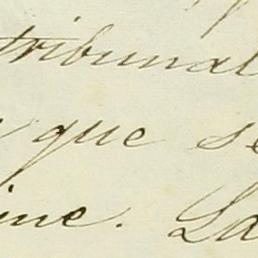 tribunal
que se
ine. La